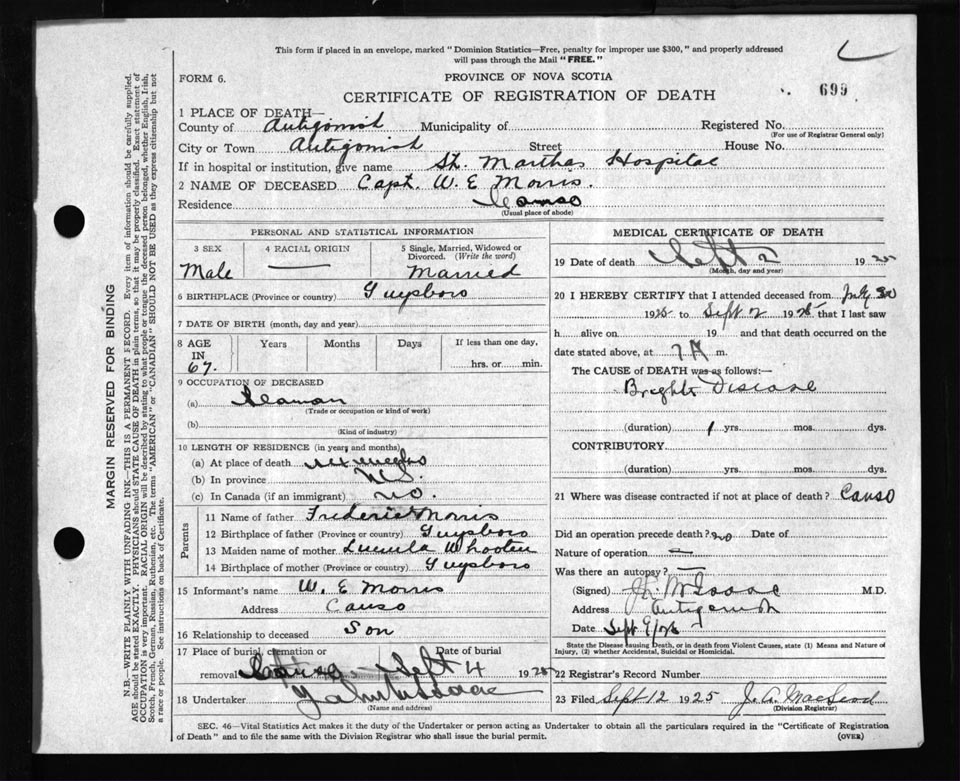 This form if placed in an envelope, marked "Dominion Statistics—Free, penalty for improper use $300," and properly addressed
will pass through the Mail "FREE."
FORM 6.
PROVINCE OF NOVA SCOTIA
CERTIFICATE OF REGISTRATION OF DEATH
699
1 PLACE OF DEATH—
County of Antigonish Municipality of Registered No.
(For use of Registrar General only)
City or Town Antigonish Street House No.
If in hospital or institution, give name St. Marthas Hospital
2 NAME OF DECEASED Capt. W. E Morris.
Residence Canso
(Usual place of abode)
PERSONAL AND STATISTICAL INFORMATION
3 SEX 4 RACIAL ORIGIN 5 Single, Married, Widowed or
Divorced. (Write the word)
Male — Married
6 BIRTHPLACE (Province or country) Guysboro
7 DATE OF BIRTH (month, day and year)
8 AGE IN Years Months Days If less than one day,
67. hrs. or min.
9 OCCUPATION OF DECEASED
(a) Seaman
(Trade or occupation or kind of work)
(b)
(Kind of industry)
10 LENGTH OF RESIDENCE (in years and months)
(a) At place of death
(b) In province N.S.
(c) In Canada (if an immigrant) no.
Parents
11 Name of father Frederick Morris
12 Birthplace of father (Province or country) Guysboro
13 Maiden name of mother Whooten
14 Birthplace of mother (Province or country) Guysboro
15 Informant's name W. E Morris
Address Canso
16 Relationship to deceased Son
17 Place of burial, cremation or Date of burial
removal Canso Sept 4 1925
18 Undertaker
(Name and address)
MEDICAL CERTIFICATE OF DEATH
19 Date of death Sept 2 1925
(Month, day and year)
20 I HEREBY CERTIFY that I attended deceased from July 30
1925 to Sept 2 1925 that I last saw
h alive on 19 and that death occurred on
date stated above, at 7 A m.
The CAUSE of DEATH was as follows:—
Brights Disease
(duration) 1 yrs. mos. dys.
CONTRIBUTORY
(duration) yrs. mos. dys.
21 Where was disease contracted if not at place of death? Canso
Did an operation precede death? no Date of
Nature of operation —
Was there an autopsy? —
(Signed) McIsaac M.D.
Address Antigonish
Date Sept 9/25
State the Disease causing Death, or in death from Violent Causes, state (1) Means and Nature of
Injury, (2) whether Accidental, Suicidal or Homicidal.
22 Registrar's Record Number
23 Filed Sept 12 1925 J. A. MacLeod
(Division Registrar)
SEC. 46—Vital Statistics Act makes it the duty of the Undertaker or person acting as Undertaker to obtain all the particulars required in the "Certificate of Registration
of Death" and to file the same with the Division Registrar who shall issue the burial permit. (OVER)
MARGIN RESERVED FOR BINDING
N.B.—WRITE PLAINLY WITH UNFADING INK—THIS IS A PERMANENT RECORD. Every item of information should be carefully supplied.
AGE should be stated EXACTLY. PHYSICIANS should STATE CAUSE OF DEATH in plain terms, so that it may be properly classified. Exact statement of
OCCUPATION is very important. RACIAL ORIGIN will be described by stating to what people or tongue the deceased person belonged, whether English, Irish,
Scotch, French, German, Russian, Ruthenian, etc. The terms "AMERICAN" or "CANADIAN" SHOULD NOT BE USED as they express citizenship but not
a race or people. See instructions on back of Certificate.